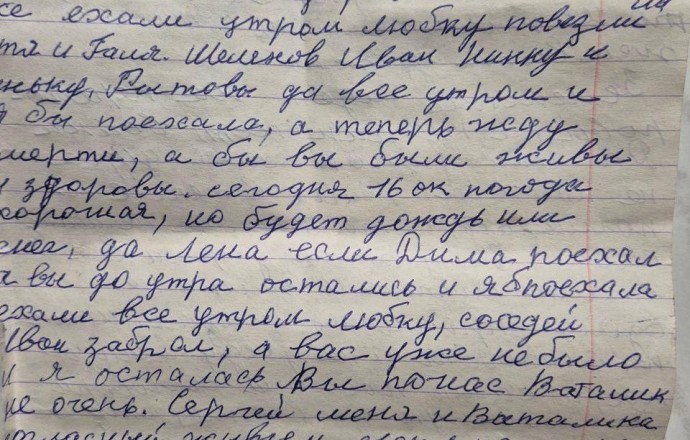 се ехали утром любку повезли
тя и Галя. Шеленов Иван Нинку и
ньку, Ростовы да все утром и
я бы поехала, а теперь жду
мерти, а бы вы были живы
и здоровы. сегодня 16 ок погода
хорошая, но будет дождь или
снег, да Лена если Дима поехал
а вы до утра остались и я б поехала
ехали все утром любку, соседей
Иван забрал, а вас уже не было
и я осталась Вы понас Ваталик
не очень. Сергей меня и Ваталика